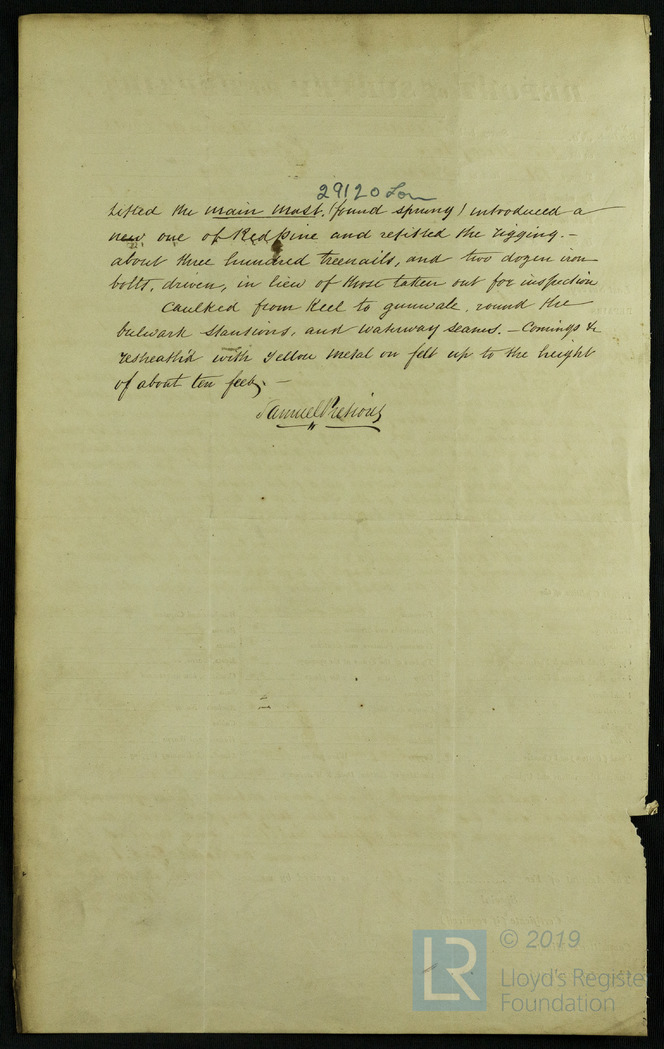 29120 Lon
Lifted the main mast, (found sprung) introduced a
new one of Red pine and refitted the rigging. –
about three hundred treenails, and two dozen iron
bolts, driven, in lieu of those taken out for inspection
Caulked from Keel to gunwale, round the
bulwark stantions, and waterway seams. – Comings &
resheath'd with Yellow Metal on felt up to the height
of about ten feet. –
Samuel
LR
© 2019
Lloyd's Register
Foundation